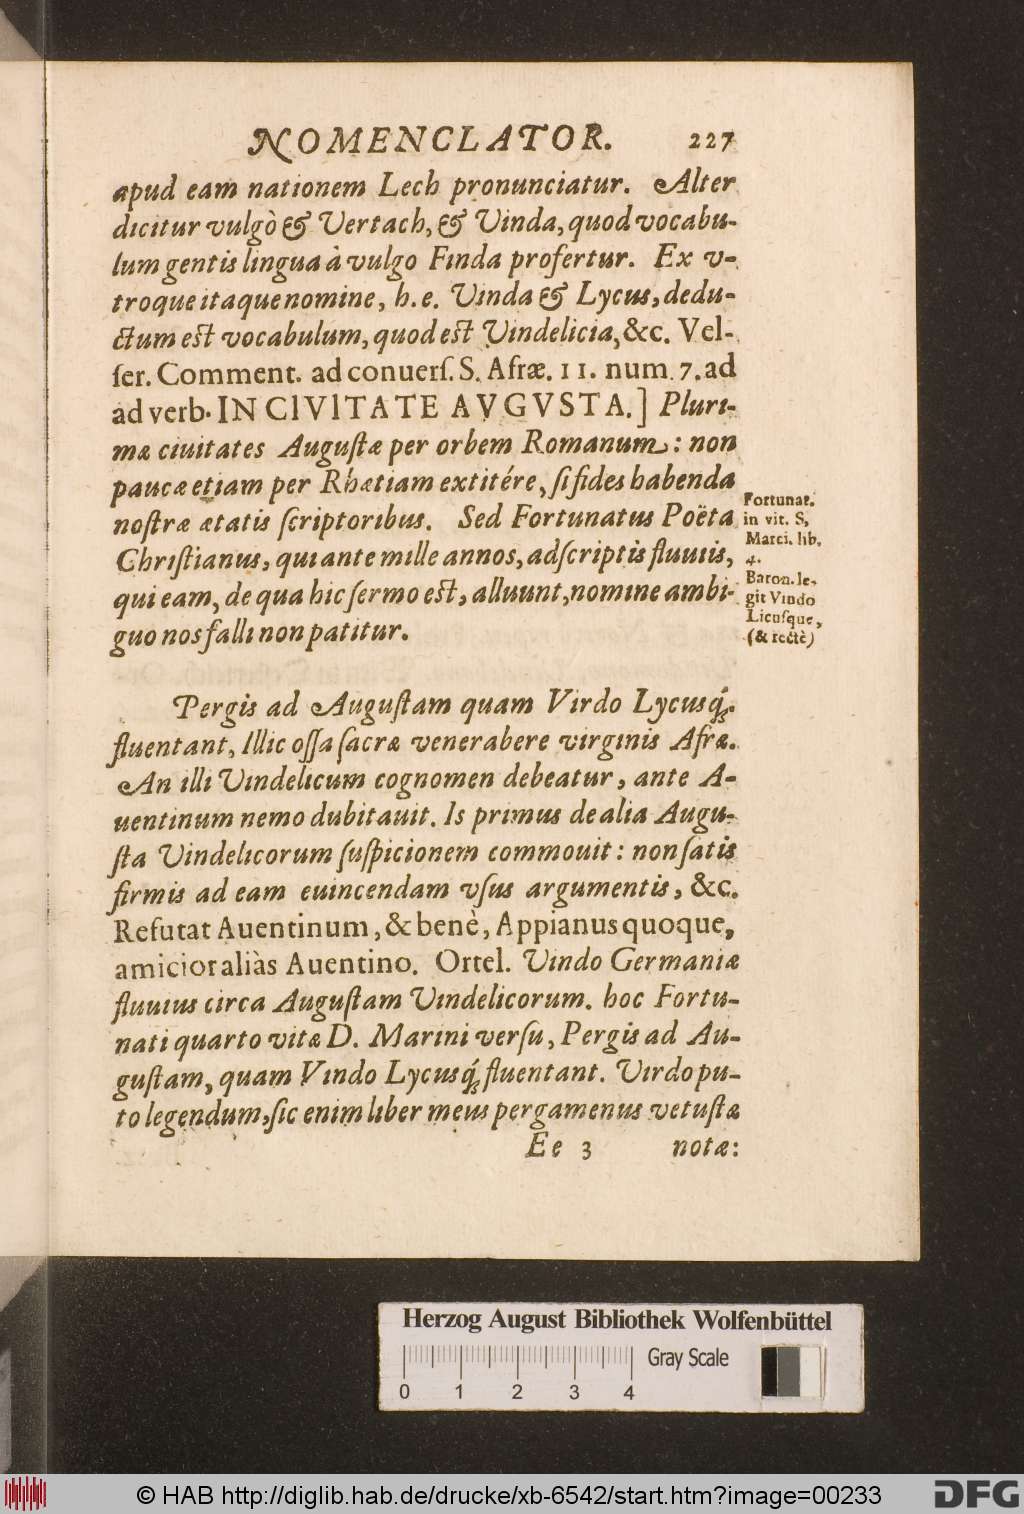 NOMENCLATOR. 227
apud eam nationem Lech pronunciatur. Alter
dicitur vulgò & Vertach, & Vinda, quod vocabu-
lum gentis lingua à vulgo Finda profertur. Ex v-
troque itaque nomine, h.e. Vinda & Lycus, dedu-
ctum est vocabulum, quod est Vindelicia, &c. Vel-
ser. Comment. ad conuerſ. S. Afræ. 11. num. 7. ad
ad verb. IN CIVITATE AVGVSTA.] Pluri-
mæ ciuitates Auguſtæ per orbem Romanum: non
paucæ etiam per Rhætiam extitére, ſi fides habenda
noſtræ ætatis ſcriptoribus. Sed Fortunatus Poëta
Chriſtianus, qui ante mille annos, adſcriptis fluuiis,
qui eam, de qua hic ſermo eſt, alluunt, nomine ambi-
guo nos falli non patitur.
Fortunat.
in vit. S.
Marci. lib.
4.
Baron. le-
git Vindo
Licuſque,
(& rectè)
Pergis ad Auguſtam quam Virdo Lycusq́;
fluentant, Illic oſſa ſacræ venerabere virginis Afræ.
An illi Vindelicum cognomen debeatur, ante A-
uentinum nemo dubitauit. Is primus de alia Augu-
ſta Vindelicorum ſuſpicionem commouit: non ſatis
firmis ad eam euincendam vſus argumentis, &c.
Refutat Auentinum, & benè, Appianus quoque,
amicior aliàs Auentino. Ortel. Vindo Germaniæ
fluuius circa Auguſtam Vindelicorum. hoc Fortu-
nati quarto vitæ D. Marini verſu, Pergis ad Au-
guſtam, quam Vindo Lycusq́; fluentant. Virdo pu-
to legendum, ſic enim liber meus pergamenus vetuſtæ
Ee 3 notæ:
Herzog August Bibliothek Wolfenbüttel
Gray Scale
0 1 2 3 4
© HAB http://diglib.hab.de/drucke/xb-6542/start.htm?image=00233
DFG